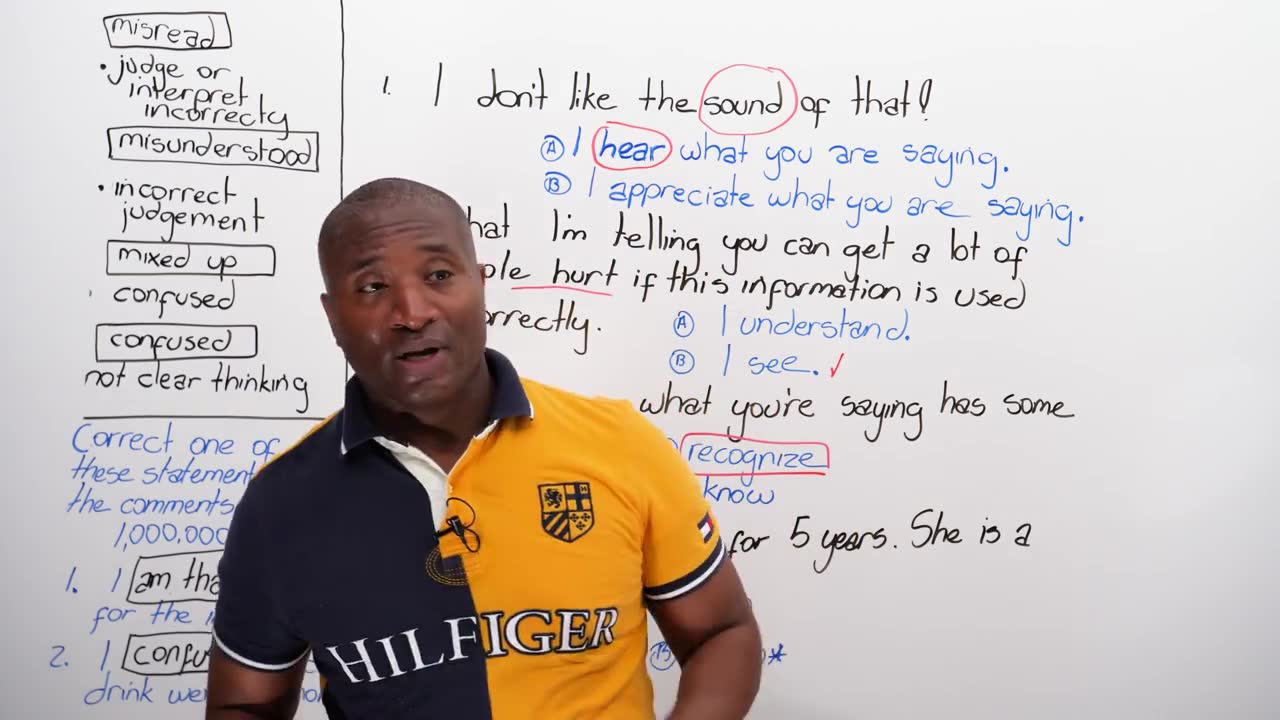 misread
• judge or
interpret
incorrecty
misunderstood
• incorrect
judgement
mixed up
confused
confused
not clear thinking
Correct one of
these statement
the comments
1,000,000
1. I am tha
for the
2. I confu
drink we
1. I don't like the sound of that!
Ⓐ I hear what you are saying.
Ⓑ I appreciate what you are saying.
hat I'm telling you can get a lot of
ple hurt if this information is used
orrectly.
Ⓐ I understand.
Ⓑ I see. ✓
what you're saying has some
recognize
know
for 5 years. She is a
Ⓑ *
HILFIGER